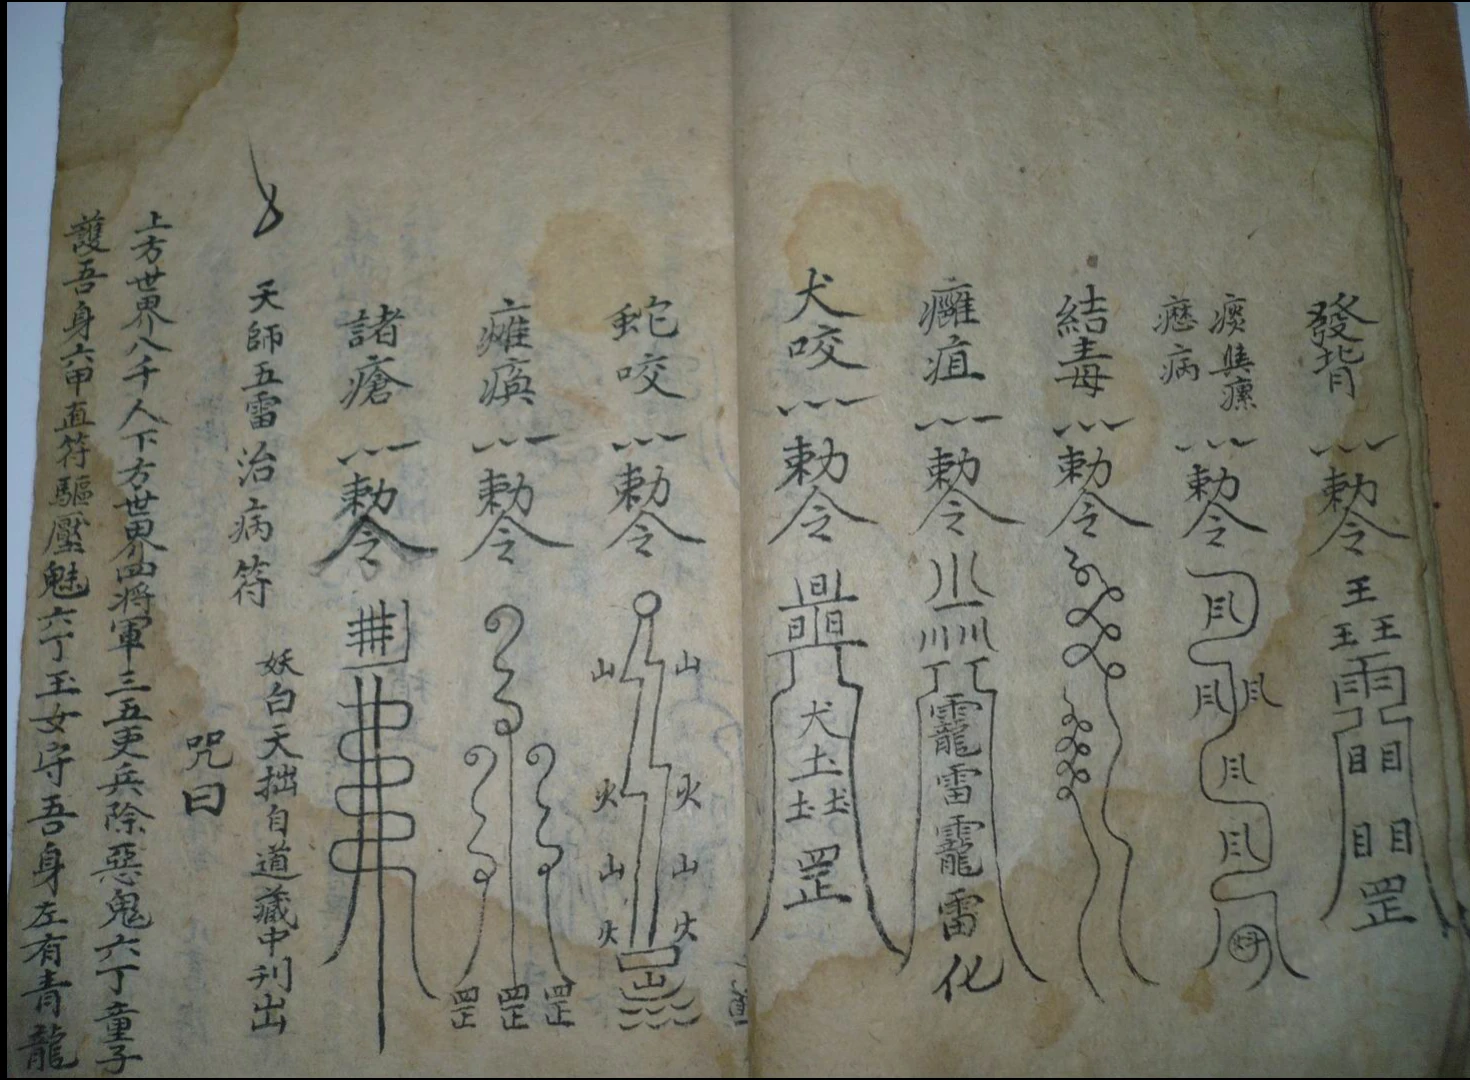 發背
勅令
王
王王
雨
目目
目目
罡
瘰
癧病
勅令
結毒
勅令
癰疽
勅令
靇
雷
靇
雷
化
犬咬
勅令
犬
土
土土
罡
蛇咬
勅令
山 山
火 火
山 山
火 火
癱瘓
勅令
罡 罡 罡
諸瘡
勅令
天師五雷治病符
妖白天拙自道藏中刊出
咒曰
上方世界八千人下方世界四將軍三五吏兵除惡鬼六丁童子
護吾身六甲直符驅壓魅六丁玉女守吾身左有青龍